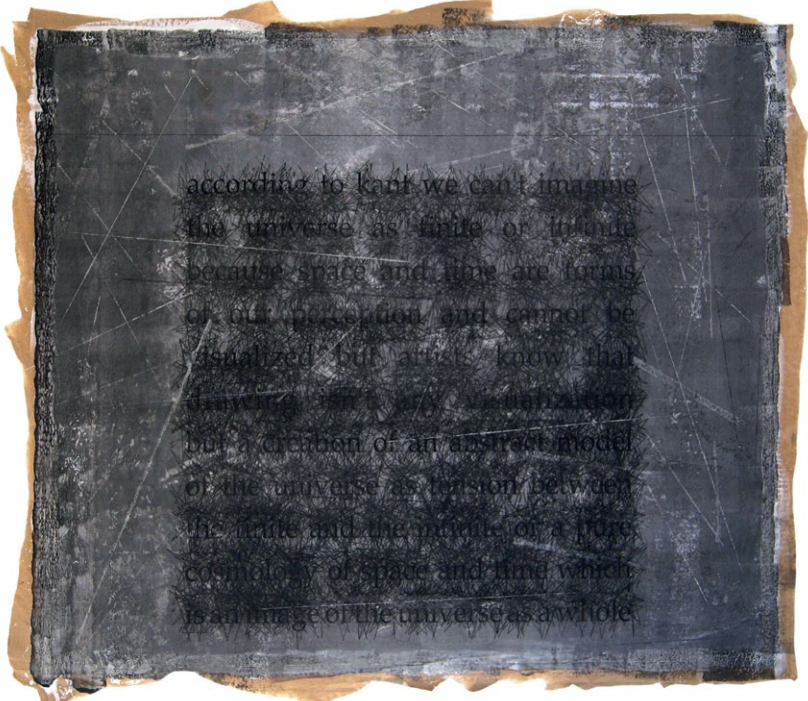 according to kant we can't imagine
the universe as finite or infinite
because space and time are forms
of our perception and cannot be
visualized but artists know that
drawing isn't any visualization
but a creation of an abstract model
of the universe as tension between
the finite and the infinite or a pure
cosmology of space and time which
is an image of the universe as a whole